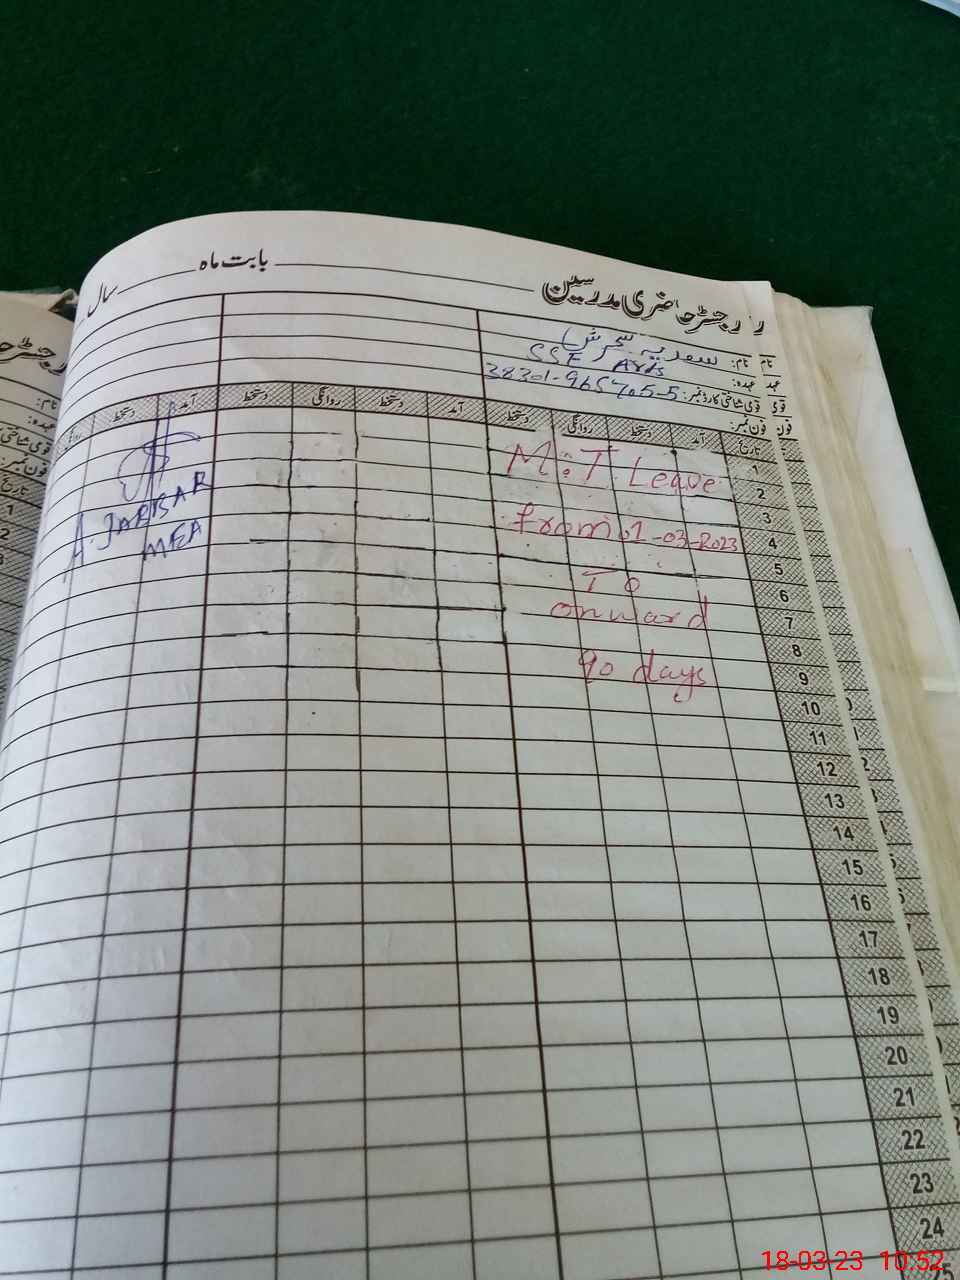 رجسٹر حاضری مدرسین بابت ماہ سال
نام: سعدیہ سحرش
عہدہ: SSE Arts
قومی شناختی کارڈ نمبر: 38301-9654705-5
فون نمبر:
تاریخ آمد دستخط روانگی دستخط آمد دستخط روانگی دستخط آمد دستخط روانگی
M.T. Leave
from 01-03-2023
To
onward
90 days
A. JABBAR
MEA
1
2
3
4
5
6
7
8
9
10
11
12
13
14
15
16
17
18
19
20
21
22
23
24
25
18-03-23 10:52